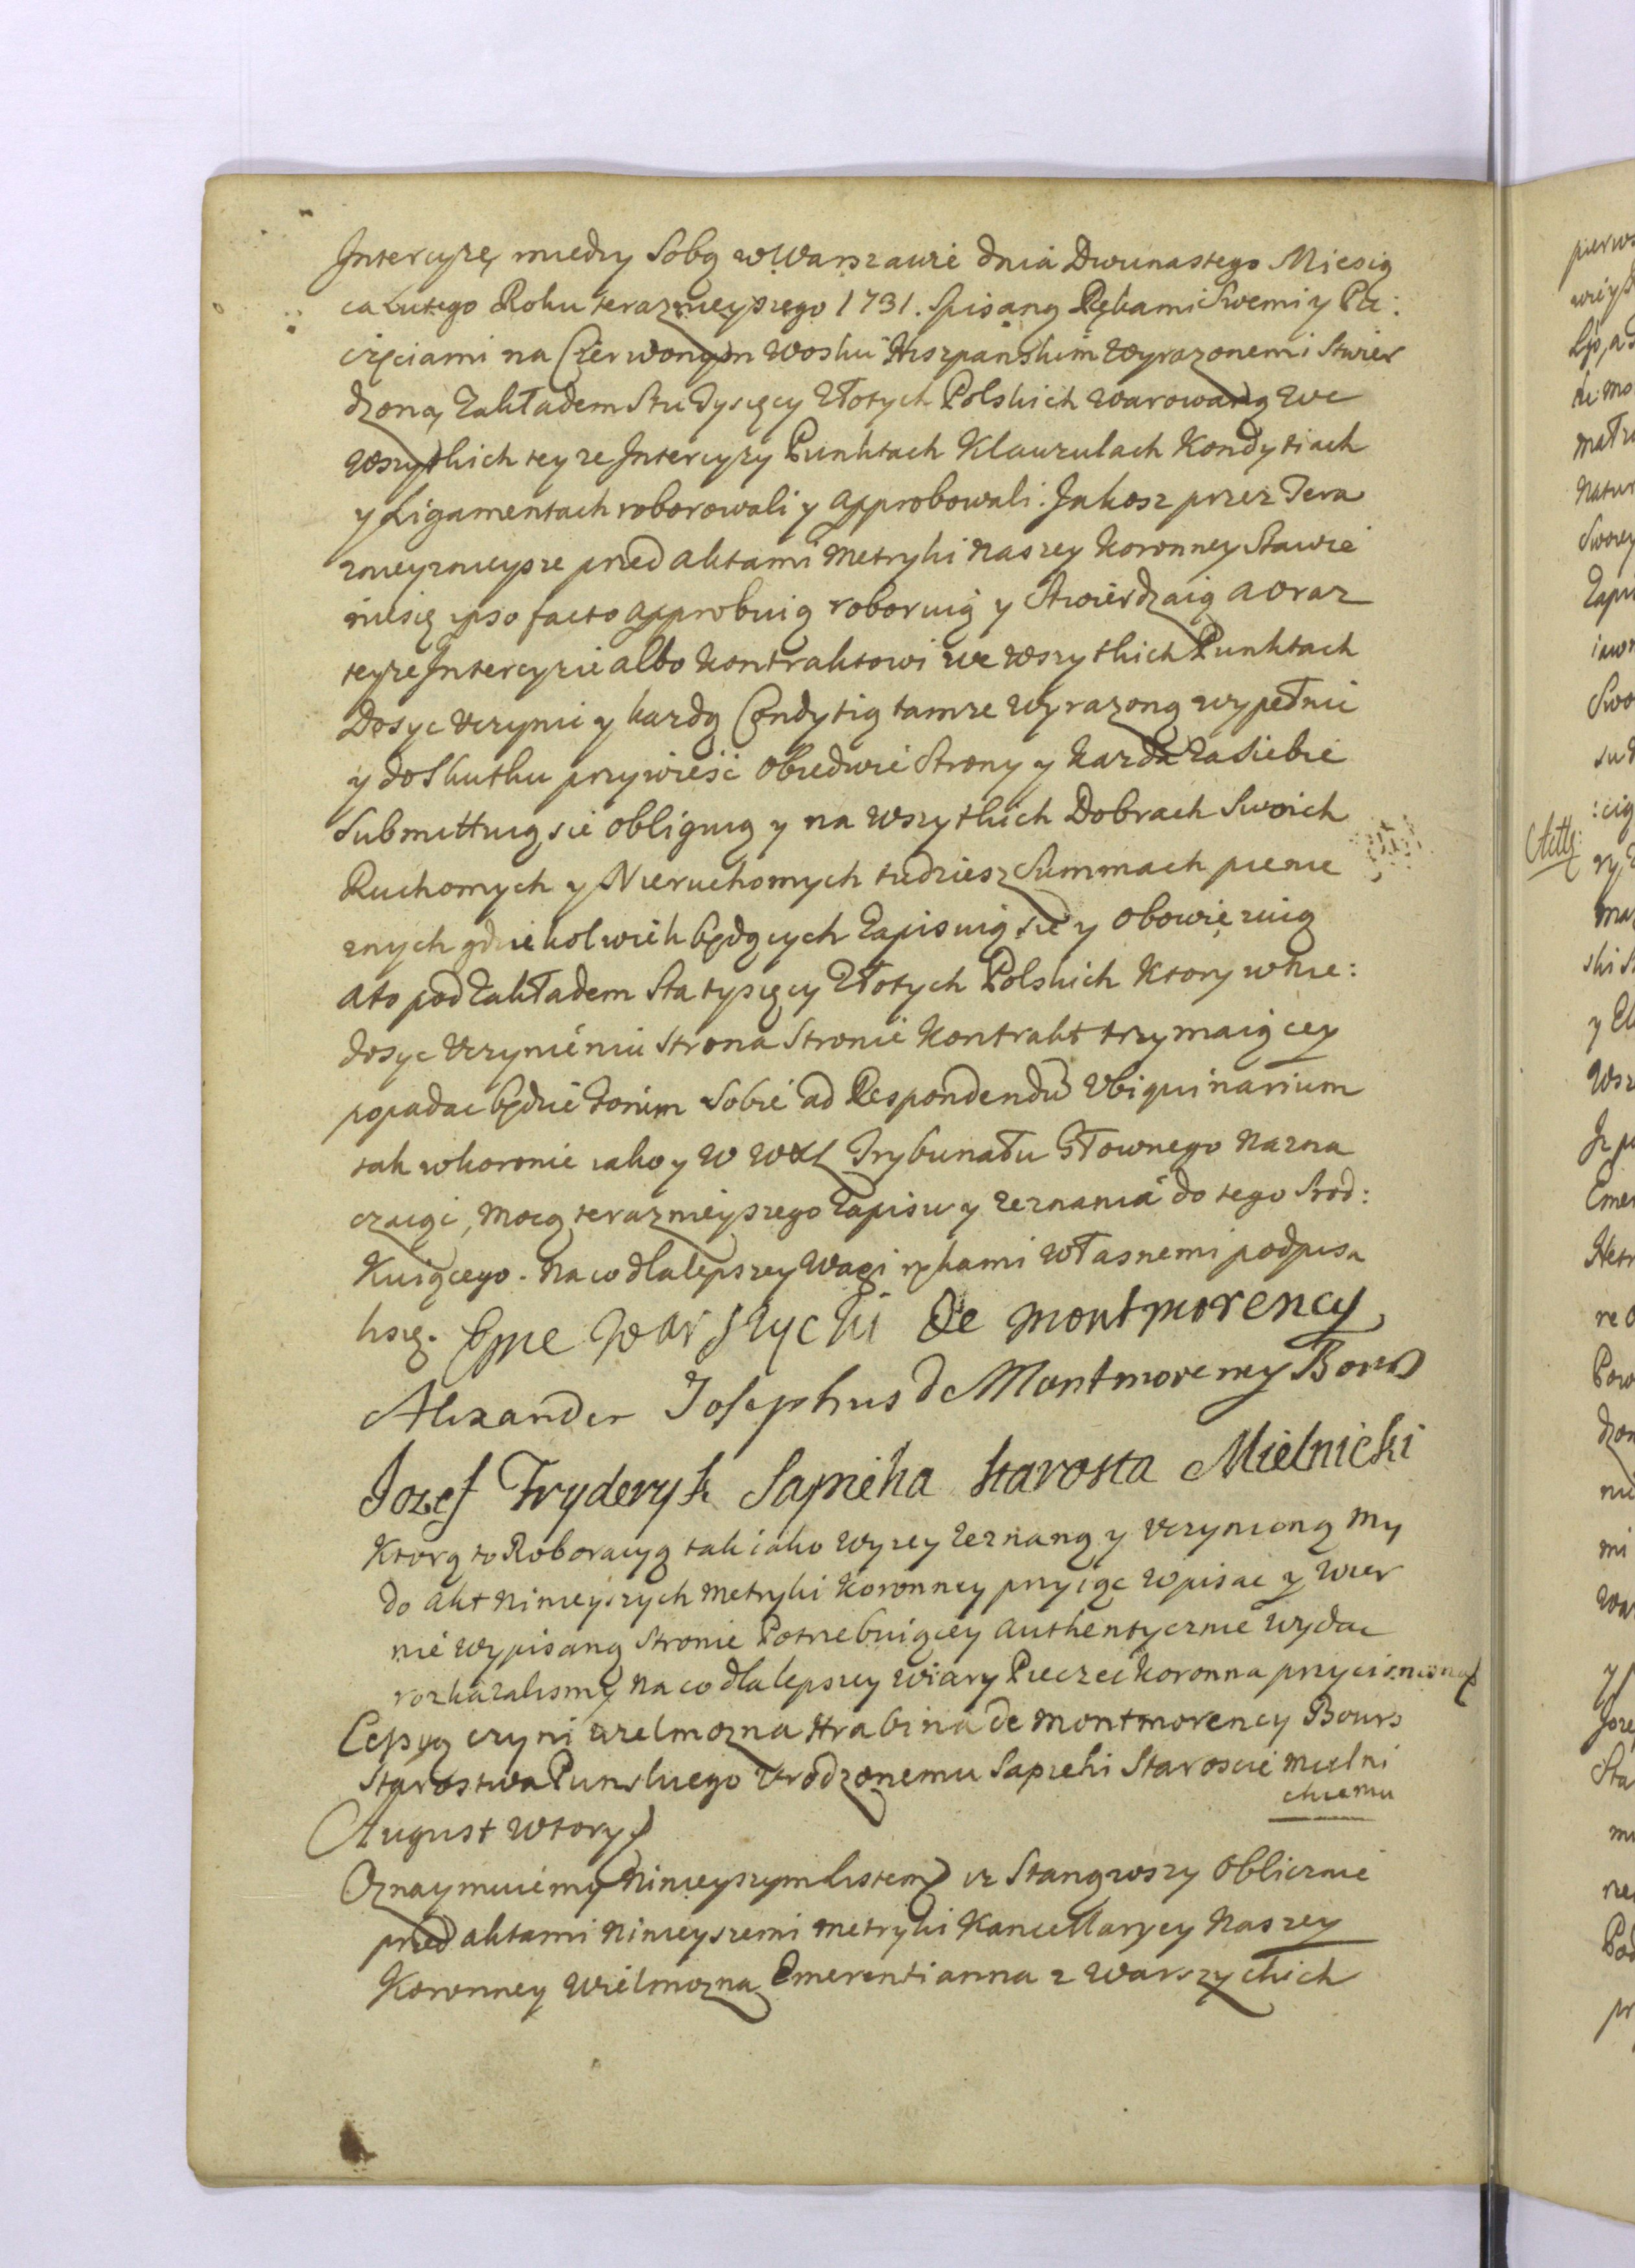 Intercyzę miedzy Sobą w Warszawie dnia Dwunastego Miesią
ca Lutego Roku terazneyszego 1731. Spisaną Rękami Swemi y Pie:
częciami na Czerwonym Wosku Hiszpanskim Wyrazonemi Stwier
dzoną Zakładem Stu Tysięcy Złotych Polskich warowaną We
Wszytkich teyze Intercyzy Punktach Klauzulach Kondytiach
y Ligamentach roborowali y approbowali. Jakosz przez Tera
znieyznieysze przed aktami Metryki Naszey Koronney Stawie
niesię ipso facto approbuią roboruią y Stwierdzaią a oraz
teyze Intercyzie albo Kontraktowi we Wszytkich Punktach
Dosyc Uczynic y kazdą Condytią tamze Wyrazoną wypełnic
y do Skutku przywiesc Obiedwie Strony y Kazda Za Siebie
Submittuią sie Obliguią y na Wszytkich Dobrach Swoich
Ruchomych y Nieruchomych tudziesz Summach pienie
znych gdziekolwiek będących Zapisuią sie y Obowięzuią
Ato pod Zakładem Sta tysięcy Złotych Polskich Ktory w nie:
dosyc Uczynieniu Strona Stronie Kontrakt trzymaiącey
popadac będzie Forum Sobie ad Respondendū Ubiquinarium
tak w Koronie iako y W WXL Trybunału Głownego Nazna
czaiąc, Mocą teraznieyszego Zapisu y Zeznania do tego Srod:
Kuiącego. Na co dla lepszey Wagi rękami Własnemi podpisa
li się. Eme Warszycki De Montmorency
Alexander Josephus de Montmorency Bours
Jozef Fryderyk Sapieha Starosta Mielnicki
Ktorą to Roboracyą tak iako Wyzey Zeznaną y Uczynioną My
do Akt Ninieyszych Metryki Koronney przyiąc Wpisac y Wier
nie Wypisaną Stronie Potrzebuiącey Authentycznie Wydac
rozkazalismy Na co dla lepszey Wiary Pieczec Koronna przycisniona
Cessyą czyni Wielmozna Hrabina de Montmorency Bours
Starostwa Punskiego Urodzonemu Sapiehi Staroscie Mielni
ckiemu
August Wtory
Oznaymuiemy Ninieyszym Listem iz Stanąwszy Oblicznie
przed aktami Ninieyszemi Metryki Kancellaryey Naszey
Koronney Wielmozna Emerentianna z Warszyckich